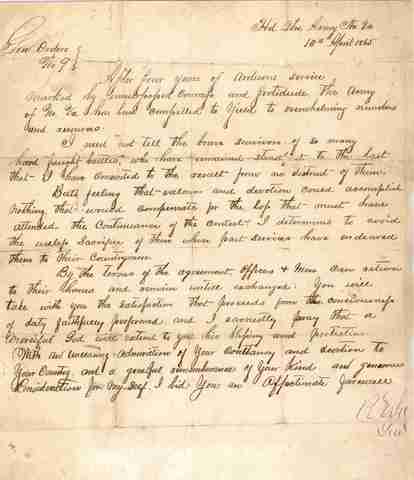 Hd Qrs Army No Va
10th April 1865
Genl Orders
No 9
After four years of arduous service
marked by unsurpassed courage and fortitude the Army
of No Va has been compelled to yield to overwhelming numbers
and resources
I need not tell the brave survivors of so many
hard fought battles, who have remained steadfast to the last
that I have consented to the result from no distrust of them.
But feeling that valour and devotion could accomplish
nothing that would compensate for the loss that must have
attended the continuance of the contest I determined to avoid
the useless sacrifice of those whose past services have endeared
them to their Countrymen
By the terms of the agreement, officers & men can return
to their homes and remain until exchanged. You will
take with you the satisfaction that proceeds from the consciousness
of duty faithfully performed, and I earnestly pray that a
Merciful God will extend to you his blessing and protection
With an unceasing admiration of your constancy and devotion to
your Country and a grateful remembrance of your kind and generous
Consideration for my self, I bid you an affectionate farewell
R E Lee
Genl